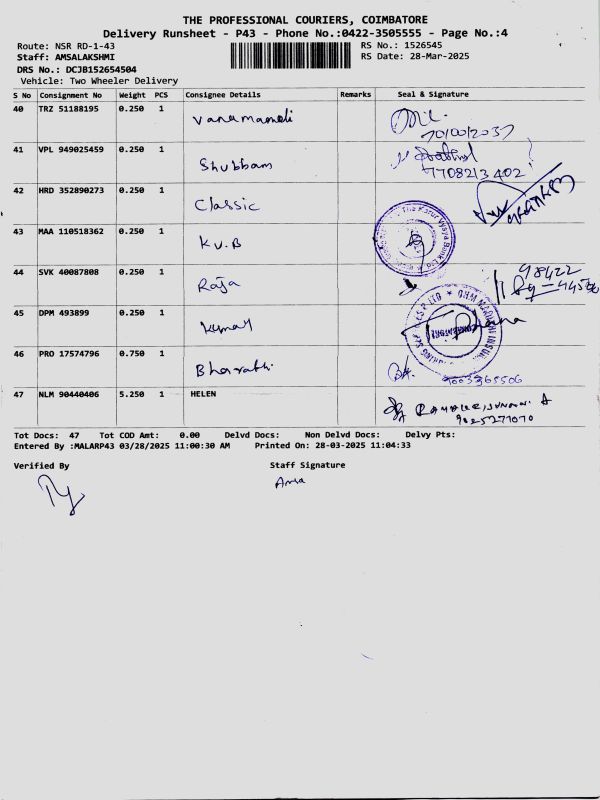 THE PROFESSIONAL COURIERS, COIMBATORE
Delivery Runsheet - P43 - Phone No.:0422-3505555 - Page No.:4
Route: NSR RD-1-43 RS No.: 1526545
Staff: AMSALAKSHMI RS Date: 28-Mar-2025
DRS No.: DCJB152654504
Vehicle: Two Wheeler Delivery
S No Consignment No Weight PCS Consignee Details Remarks Seal & Signature
40 TRZ 51188195 0.250 1 Vanamamali
41 VPL 949025459 0.250 1 Shubham
7708213402
42 HRD 352890273 0.250 1 Classic
43 MAA 110518362 0.250 1 K.V.B
The Karur Vysya Bank Ltd
44 SVK 40087808 0.250 1 Raja
98422
45 DPM 493899 0.250 1 Kumar
46 PRO 17574796 0.750 1 Bharathi
9003365506
47 NLM 90440406 5.250 1 HELEN
9025271070
Tot Docs: 47 Tot COD Amt: 0.00 Delvd Docs: Non Delvd Docs: Delvy Pts:
Entered By :MALARP43 03/28/2025 11:00:30 AM Printed On: 28-03-2025 11:04:33
Verified By Staff Signature
Amsa